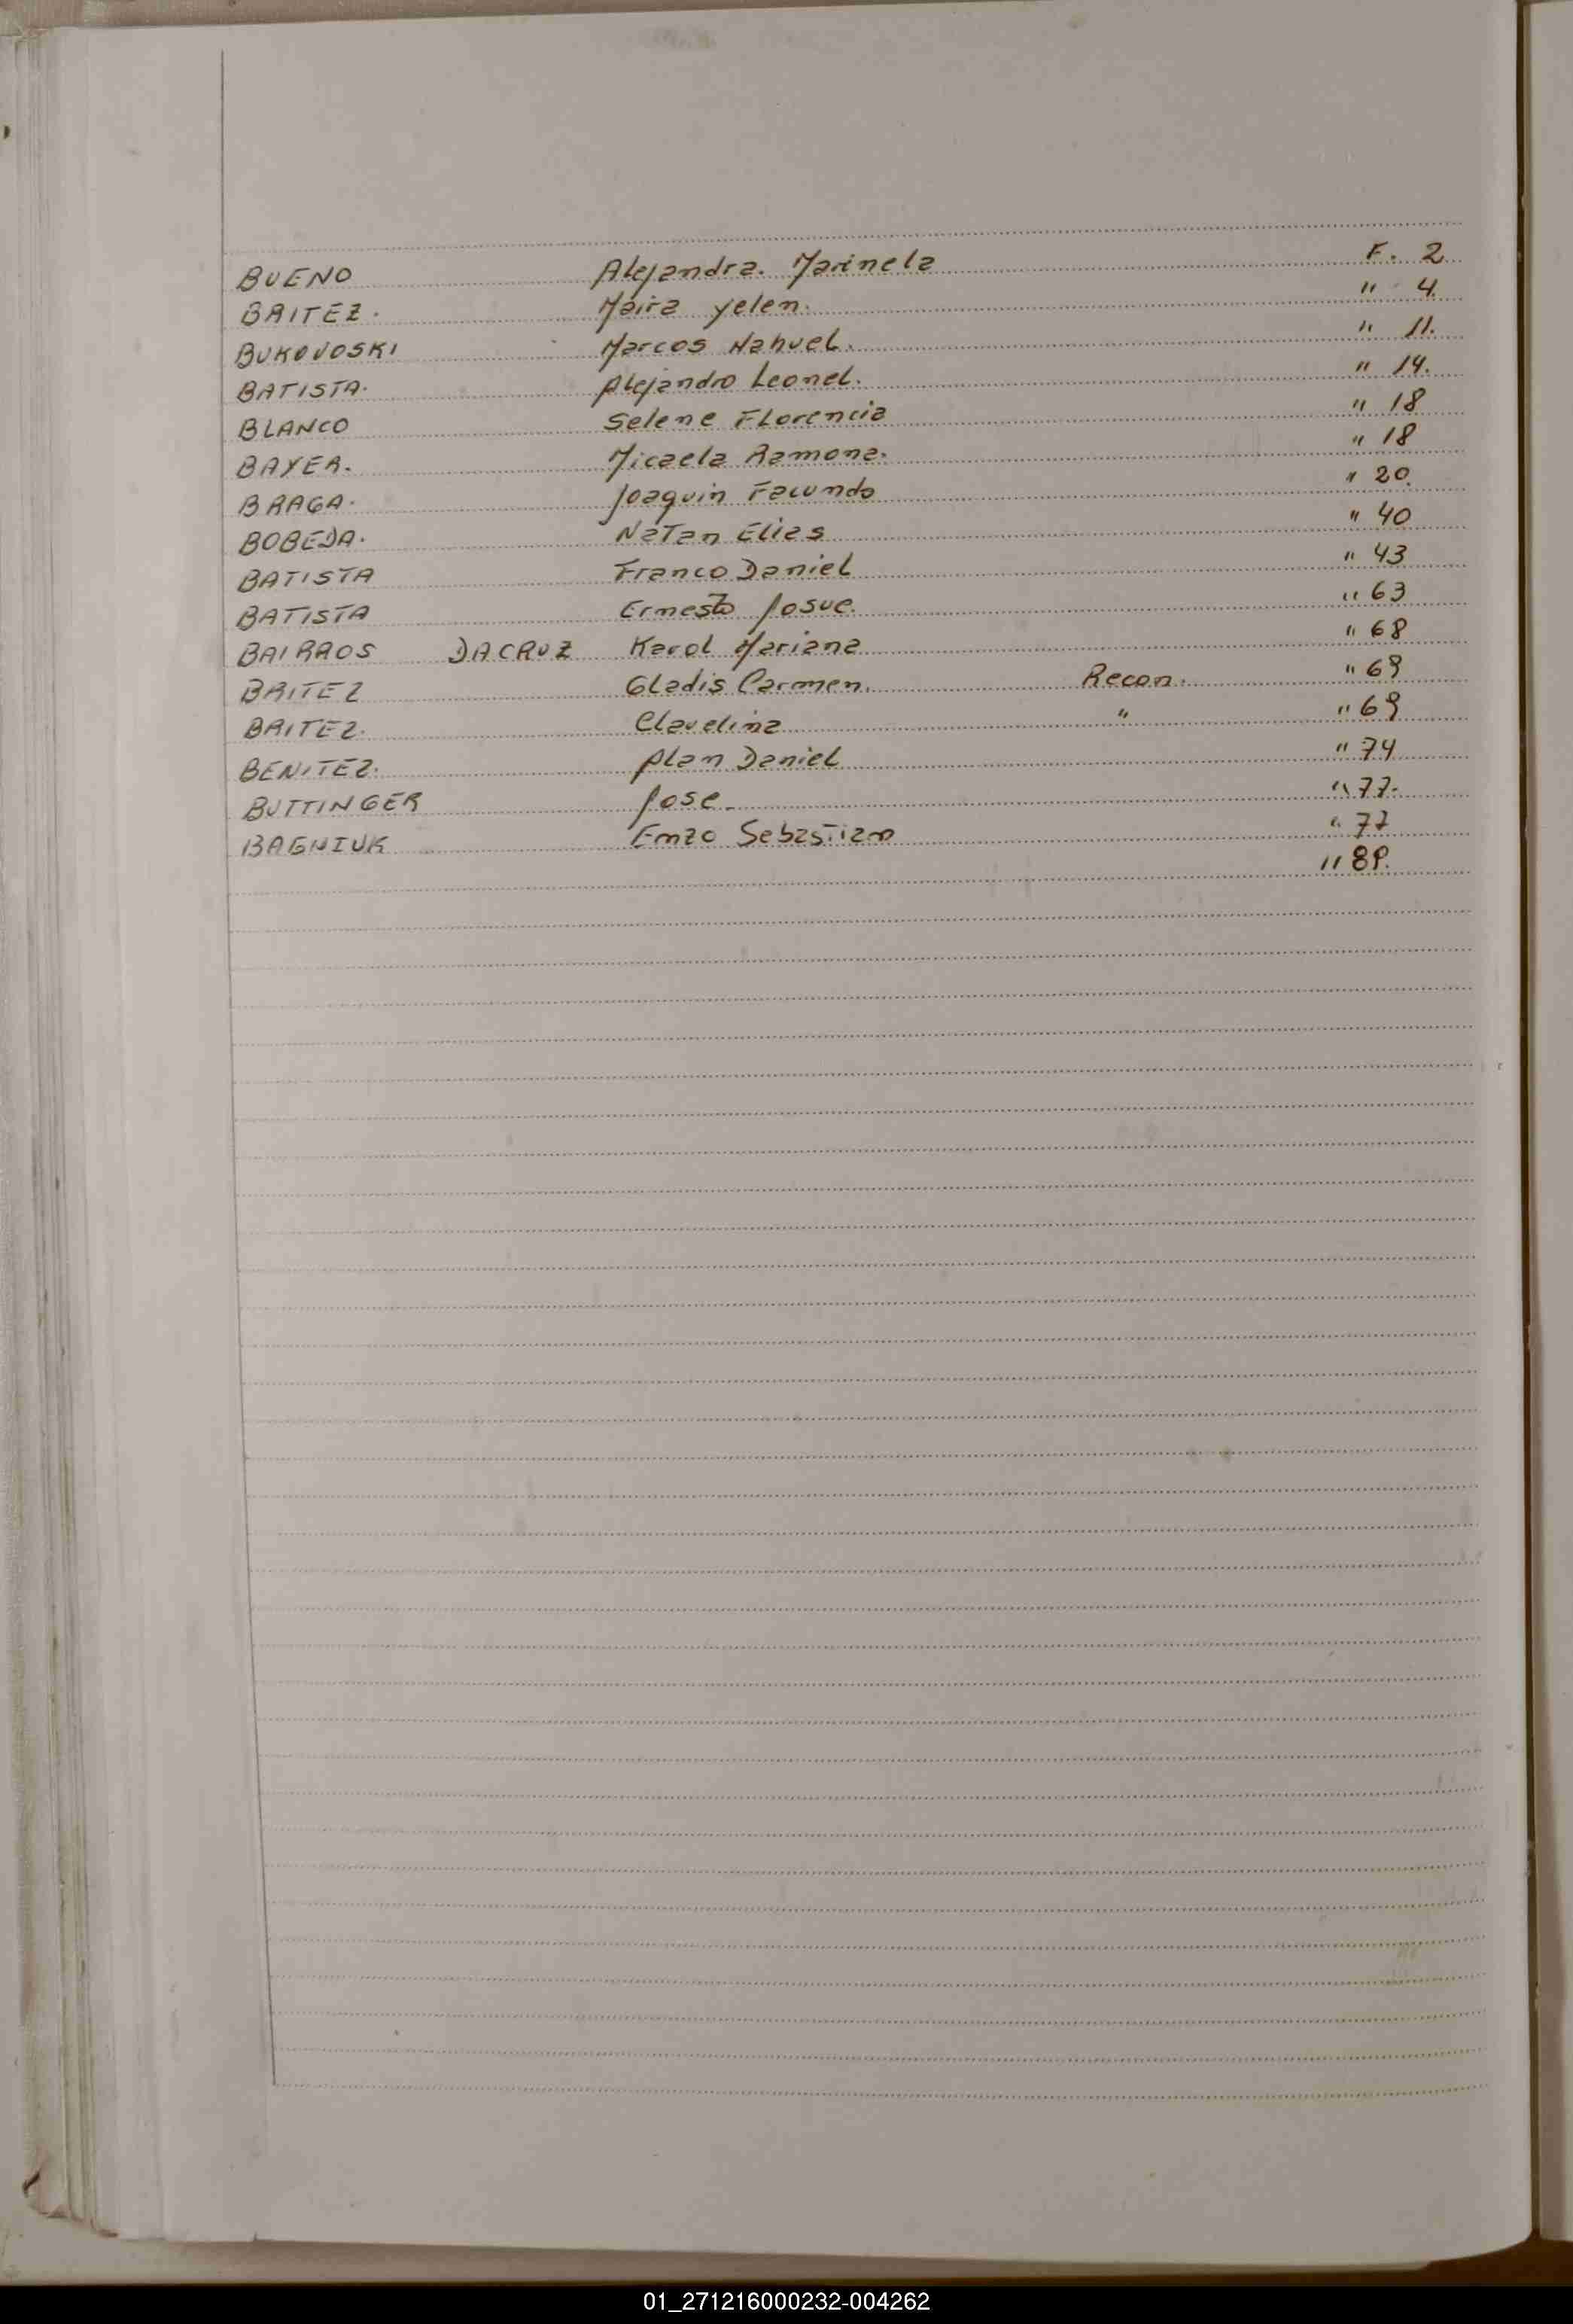 BUENO Alejandra. Marinela F. 2
BRITEZ. Maira Yelen. " 4
BUKOVOSKI Marcos Nahuel. " 11.
BATISTA. Alejandro Leonel. " 14.
BLANCO Selene Florencia " 18
BAYER. Micaela Ramona. " 18
BRAGA. Joaquin Facundo " 20.
BOBEDA. Natan Elias " 40
BATISTA Franco Daniel " 43
BATISTA Ernesto Josue. " 63
BAIRROS DACRUZ Karol Mariana " 68
BRITEZ Gladis Carmen. Recon. " 69
BRITEZ. Clavelina " " 69
BENITEZ. Alan Daniel " 74
BUTTINGER Jose_ " 77.
BAGNIUK Enzo Sebastian " 77
" 89.
01_271216000232-004262